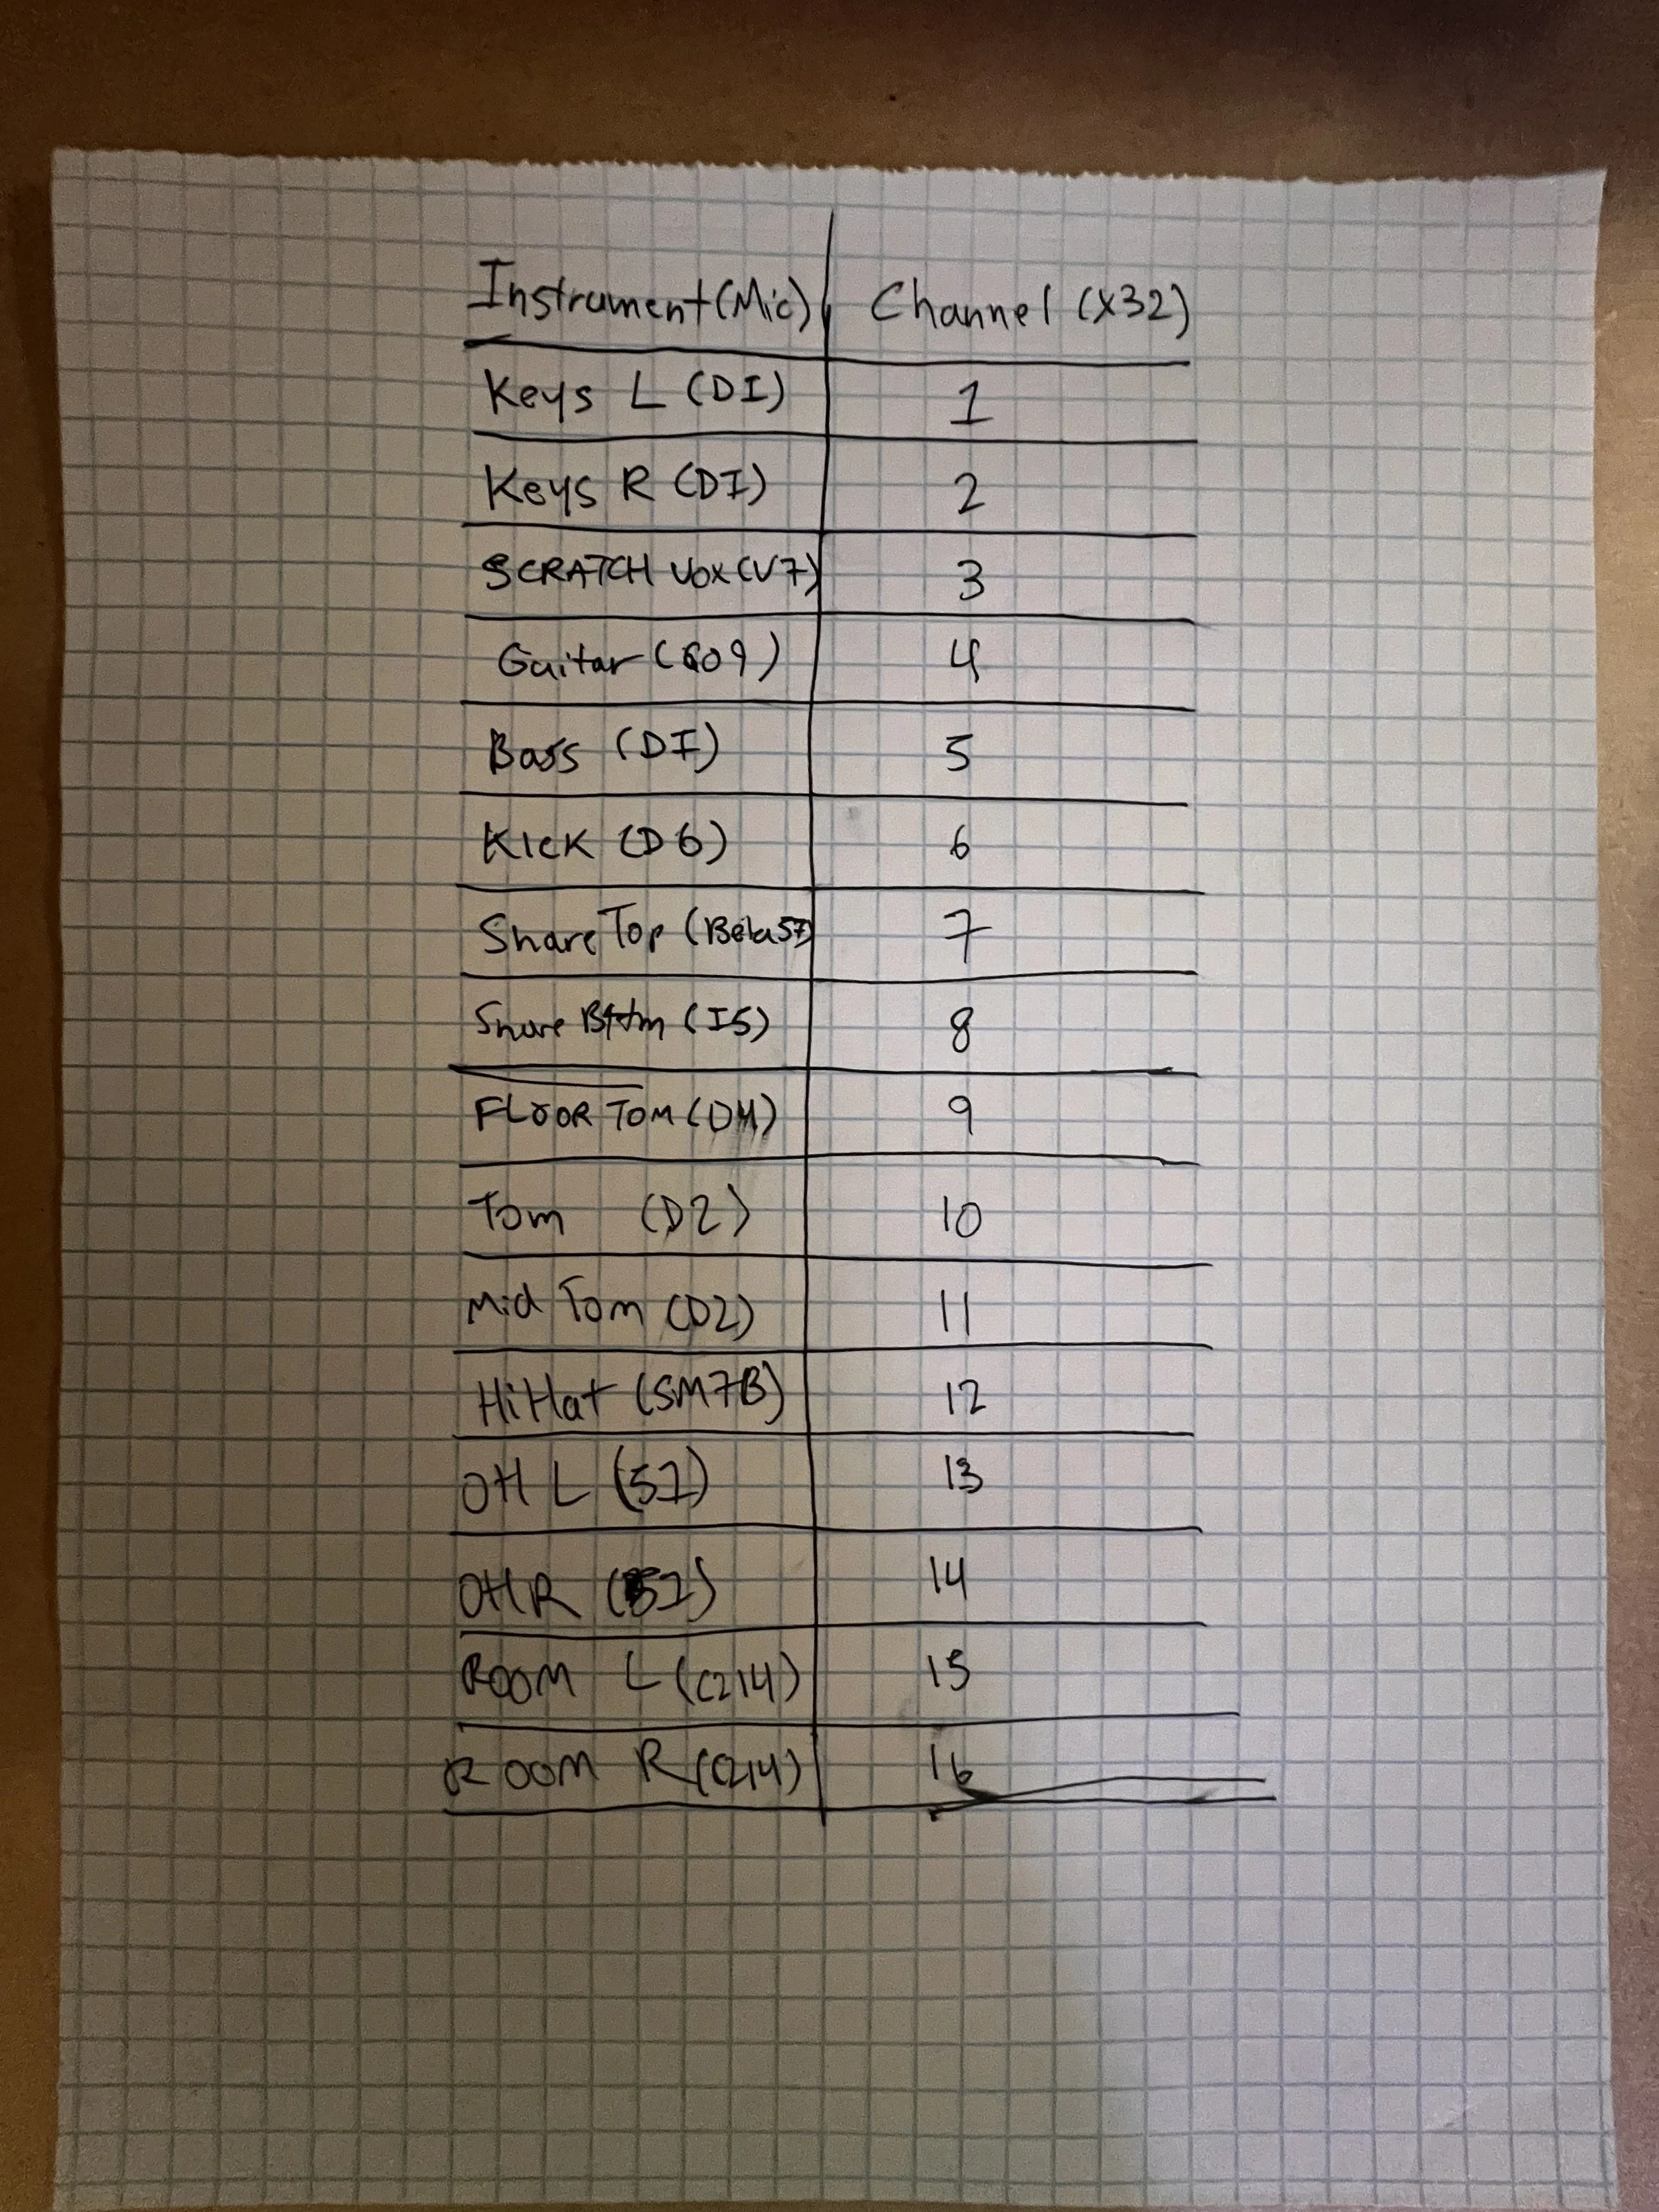 Instrument (Mic) Channel (X32)
Keys L (DI) 1
Keys R (DI) 2
SCRATCH VOX (V7) 3
Guitar (609) 4
Bass (DI) 5
Kick (D6) 6
Snare Top (Beta57) 7
Snare Bttm (I5) 8
FLOOR TOM (D4) 9
Tom (D2) 10
Mid Tom (D2) 11
HiHat (SM7B) 12
OH L (51) 13
OH R (51) 14
ROOM L (C214) 15
ROOM R (C214) 16